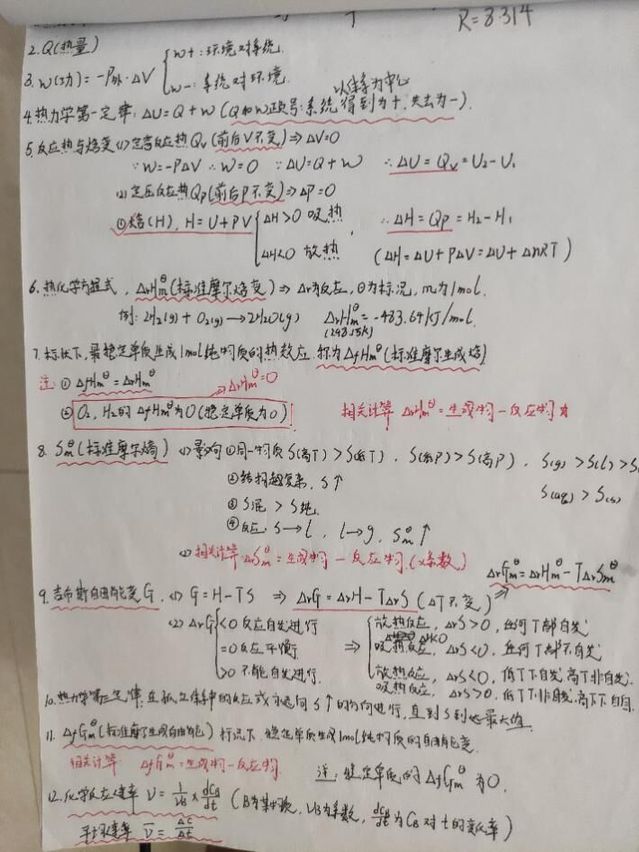 R=8.314
2.Q(热量)
3. W(功)=-P外·ΔV { W+:环境对系统.
W-:系统对环境.
以体系为中心
4.热力学第一定律: ΔU=Q+W (Q和W正负号:系统得到为+,失去为-).
5.反应热与焓变 (1)定容反应热Qv(前后V不变)⇒ΔV=0
∵W=-PΔV ∴W=0 ∵ΔU=Q+W ∴ΔU=Qv=U₂-U₁
(2)定压反应热Qp(前后P不变)⇒ΔP=0
①焓(H), H=U+PV { ΔH>0 吸热, ∴ΔH=Qp=H₂-H₁
ΔH<0 放热 (ΔH=ΔU+PΔV=ΔU+ΔnRT)
6.热化学方程式, ΔrHmθ(标准摩尔焓变)⇒Δr为反应, θ为标况, m为1mol.
例: 2H₂(g)+O₂(g)→2H₂O(g) ΔrHmθ=-483.64kJ/mol
(298.15K)
7.标状下,最稳定单质生成1mol纯物质的热效应 称为ΔfHmθ(标准摩尔生成焓)
注: ① ΔfHmθ=ΔrHmθ
→ΔrHmθ=0
② O₂, H₂的ΔfHmθ为0(稳定单质为0) 相关计算 ΔrHmθ=生成物-反应物
8. Smθ(标准摩尔熵) (1)影响①同一物质S(高T)>S(低T), S(低P)>S(高P), S(g)>S(l)>S
②结构越复杂, S↑ S(aq)>S(s)
③S混>S纯.
④反应: S→l, l→g, Smθ↑
(2)相关计算 ΔrSmθ=生成物-反应物.(×系数)
ΔrGmθ=ΔrHmθ-TΔrSmθ
9.吉布斯自由能变G. (1) G=H-TS ⇒ ΔrG=ΔrH-TΔrS (ΔT不变)
(2) ΔrG { <0 反应自发进行 ⇒ { 放热反应, ΔrS>0, 任何T都自发
=0 反应平衡 吸热反应, ΔrS<0, 任何T都不自发
>0 不能自发进行. 放热反应, ΔrS<0, 低T下自发,高T非自发
吸热反应, ΔrS>0, 低T下非自发,高T下自自.
10.热力学第二定律:在孤立体系中的反应或永远向S↑的方向进行,直到S到达最大值.
11. ΔfGmθ(标准摩尔生成自由能) 标况下,稳定单质生成1mol纯物质的自由能变.
相关计算 ΔfGmθ=生成物-反应物. 注:稳定单质的ΔfGmθ为0.
12.化学反应速率 v=1/νB×dcB/dt (B为某物质, νB为系数, dcB/dt为CB对t的变化率)
平均速率 v̄=Δc/Δt